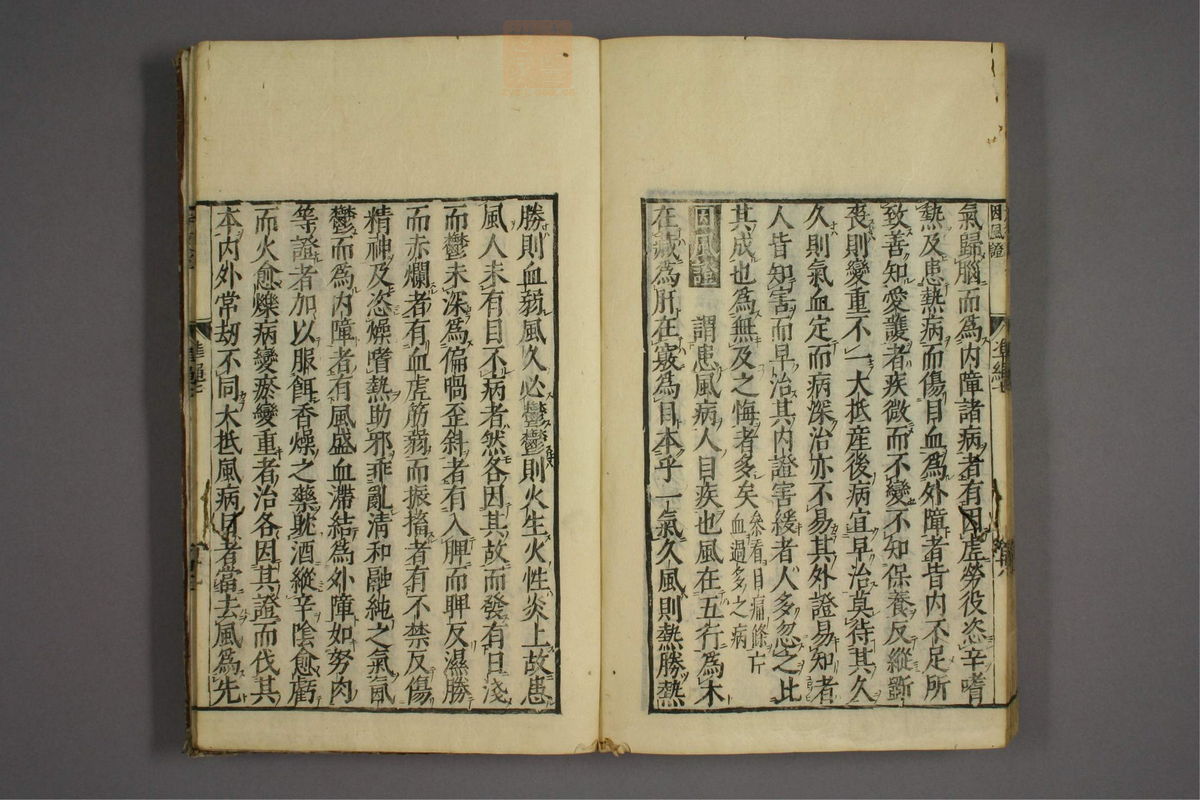 因風證
氣歸腦而為内障諸病者有因虛勞役恣辛嗜
熱及患熱病而傷目血為外障者皆内不足所
致善知愛護者疾微而不變不知保養反縱斵
喪則變重不一大抵産後病宜早治莫待其久
久則氣血定而病深治亦不易其外證易知者
人皆知害而早治其内證害緩者人多忽之比
其成也為無及之悔者多矣叅看目痛條亡
血過多之病
因風證
謂患風病人目疾也風在五行為木
在藏為肝在竅為目本乎一氣久風則熱勝熱
勝則血弱風久必鬱鬱則火生火性炎上故患
風人未有目不病者然各因其故而發有日淺
而鬱未深為偏喎歪斜者有入脾而脾反濕勝
而赤爛者有血虛筋弱而振搐者有不禁反傷
精神及恣燥嗜熱助邪乖亂清和融純之氣氣
鬱而為内障者有風盛血滯結為外障如努肉
等證者加以服餌香燥之藥耽酒縱辛陰愈虧
而火愈爍病變瘀變重者治各因其證而伐其
本内外常劫不同大抵風病目者當去風為先